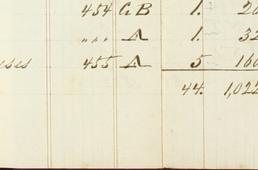 454 GB 1. 20
" " A 1. 32
ses 455 A 5 160
44. 1,022